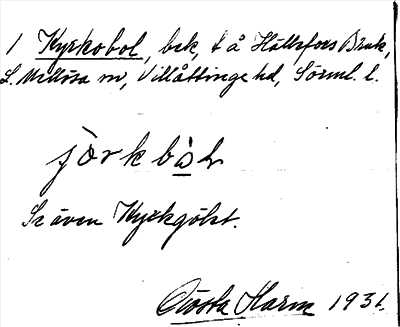 1 Kyrkobol, bek, t å Hälleforsbruk,
L. Mellösa sn, Villåttinge hd, Sörml. l.
Se även Kyrkgölst.
Gösta Harm 1931.